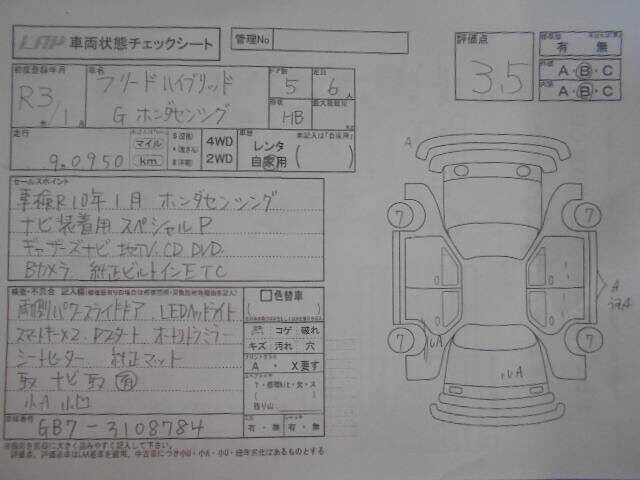 LAP 車両状態チェックシート
管理No
評価点
3.5
修復歴
有 ・ 無
外装
A・B・C
内装
A・B・C
初度登録年月
R3年/1月
車名
フリードハイブリッド
G ホンダセンシング
ドア数
5
定員
6人
形状
HB
最大積載量
走行
90950
マイル
km
4WD
2WD
車歴
レンタ
自家用
セールスポイント
車検R10年1月 ホンダセンシング
ナビ装着用スペシャルP
ギャザーズナビ 地TV.CD.DVD.
Bカメラ. 純正ビルトインETC
検査・不具合 記入欄
両側パワースライドドア LEDヘッドライト
スマートキー×2. Pスタート オートリトラミラー
シートヒーター 純正マット
取 ナビ 取 有
小A 小凹
色替車
コゲ 破れ
キズ 汚れ 穴
フロントガラス
A ・ X要す
残り山
有・無
有・無
車体番号
GB7-3108784
A
7
7
7
7
A
小A
小A